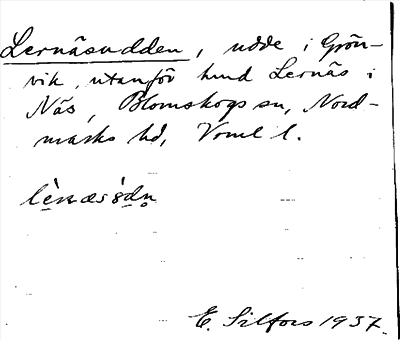 Lernäsudden, udde i Grön-
vik, utanför hmd Lernäs i
Näs, Blomskogs sn, Nord-
marks hd, Vrml l.
lè̱næsùdn̥
E. Silfors 1937.